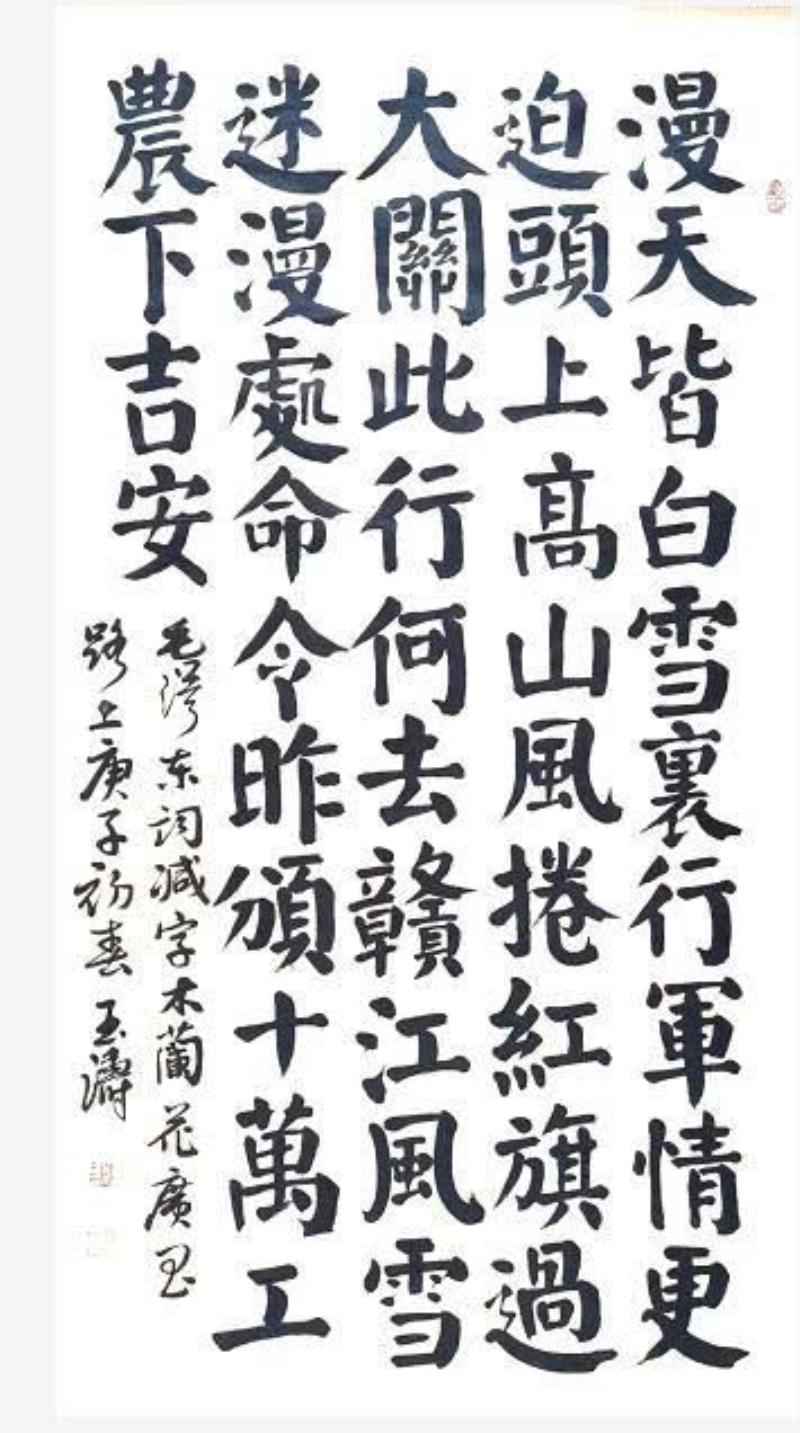 漫天皆白雪裏行軍情更
迫頭上高山風捲紅旗過
大關此行何去贛江風雪
迷漫處命令昨頒十萬工
農下吉安
毛澤东词减字木蘭花廣昌
路上庚子初春玉濤